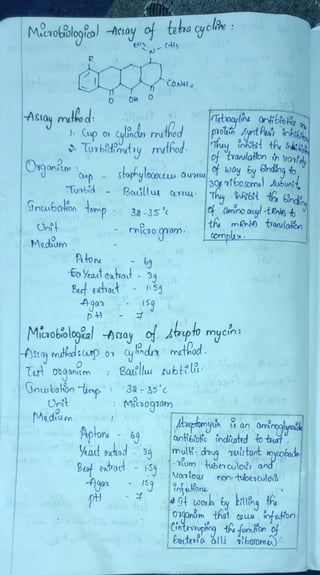 Microbiological Assay of tetracycline :
CH3 CH3
N
R
CONH2
O OH O
Assay method :
1. Cup or cylinder method
2. Turbidimetry method.
Organism :
Cup - staphylococcus aureus
Turbid - Bacillus cereus.
Incubation temp : 32-35°c
Unit - microgram.
Medium -
Petone - 6g
Yeast extract - 3g
Beef extract - 1.5g
Agar - 15g
pH - 7
Tetracycline antibiotics are
protein synthesis inhibitor
They inhibit the
of translation in variety
of way by Binding to
30s ribosomal subunit
They inhibit the Binding
of aminoacyl-tRNA to
the mRNA translation
complex.
Microbiological Assay of streptomycin:
Assay method : cup or cylinder method.
Test organism : Bacillus subtilis.
Incubation temp : 32-35°c
Unit : Microgram
Medium :
Peptone - 6g
Yeast extract - 3g
Beef extract - 1.5g
Agar - 15g
pH - 7
Streptomycin is an aminoglycoside
antibiotic indicated to treat
multi-drug resistant mycobacte-
-rium tuberculosis and
various non-tuberculosis
infections.
* It work by killing the
organism that cause infection.
(interrupting the function of
bacteria cells ribosome)